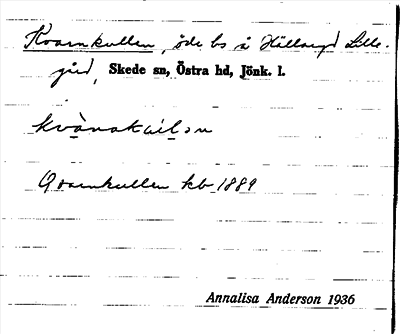 Kvarnkullen, öde bs å Hällaryd Lille-
gård, Skede sn, Östra hd, Jönk. l.
kvànakùilən
Qvarnkullen kb 1889
Annalisa Anderson 1936